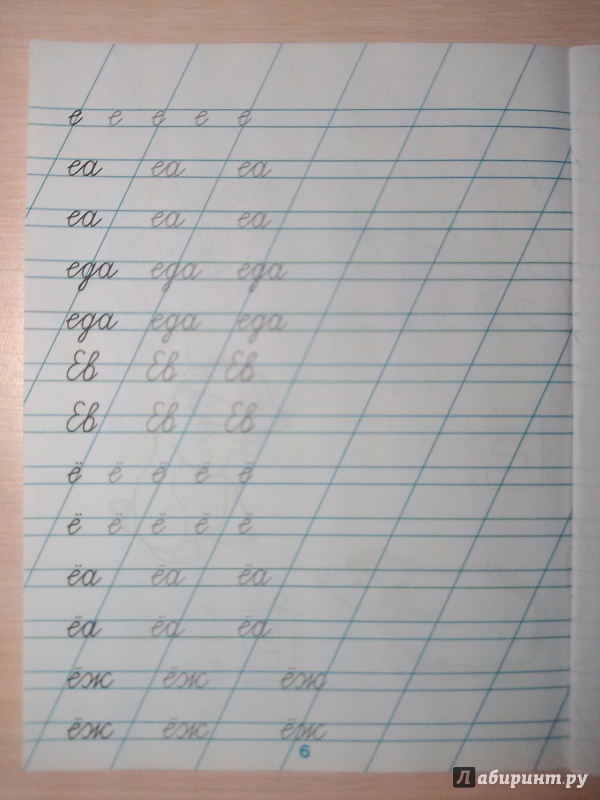 е е е е е
еа еа еа
еа еа еа
еда еда еда
еда еда еда
Ев Ев Ев
Ев Ев Ев
ё ё ё ё ё
ё ё ё ё ё
ёа ёа ёа
ёа ёа ёа
ёж ёж ёж
ёж ёж ёж
6
Лабиринт.ру